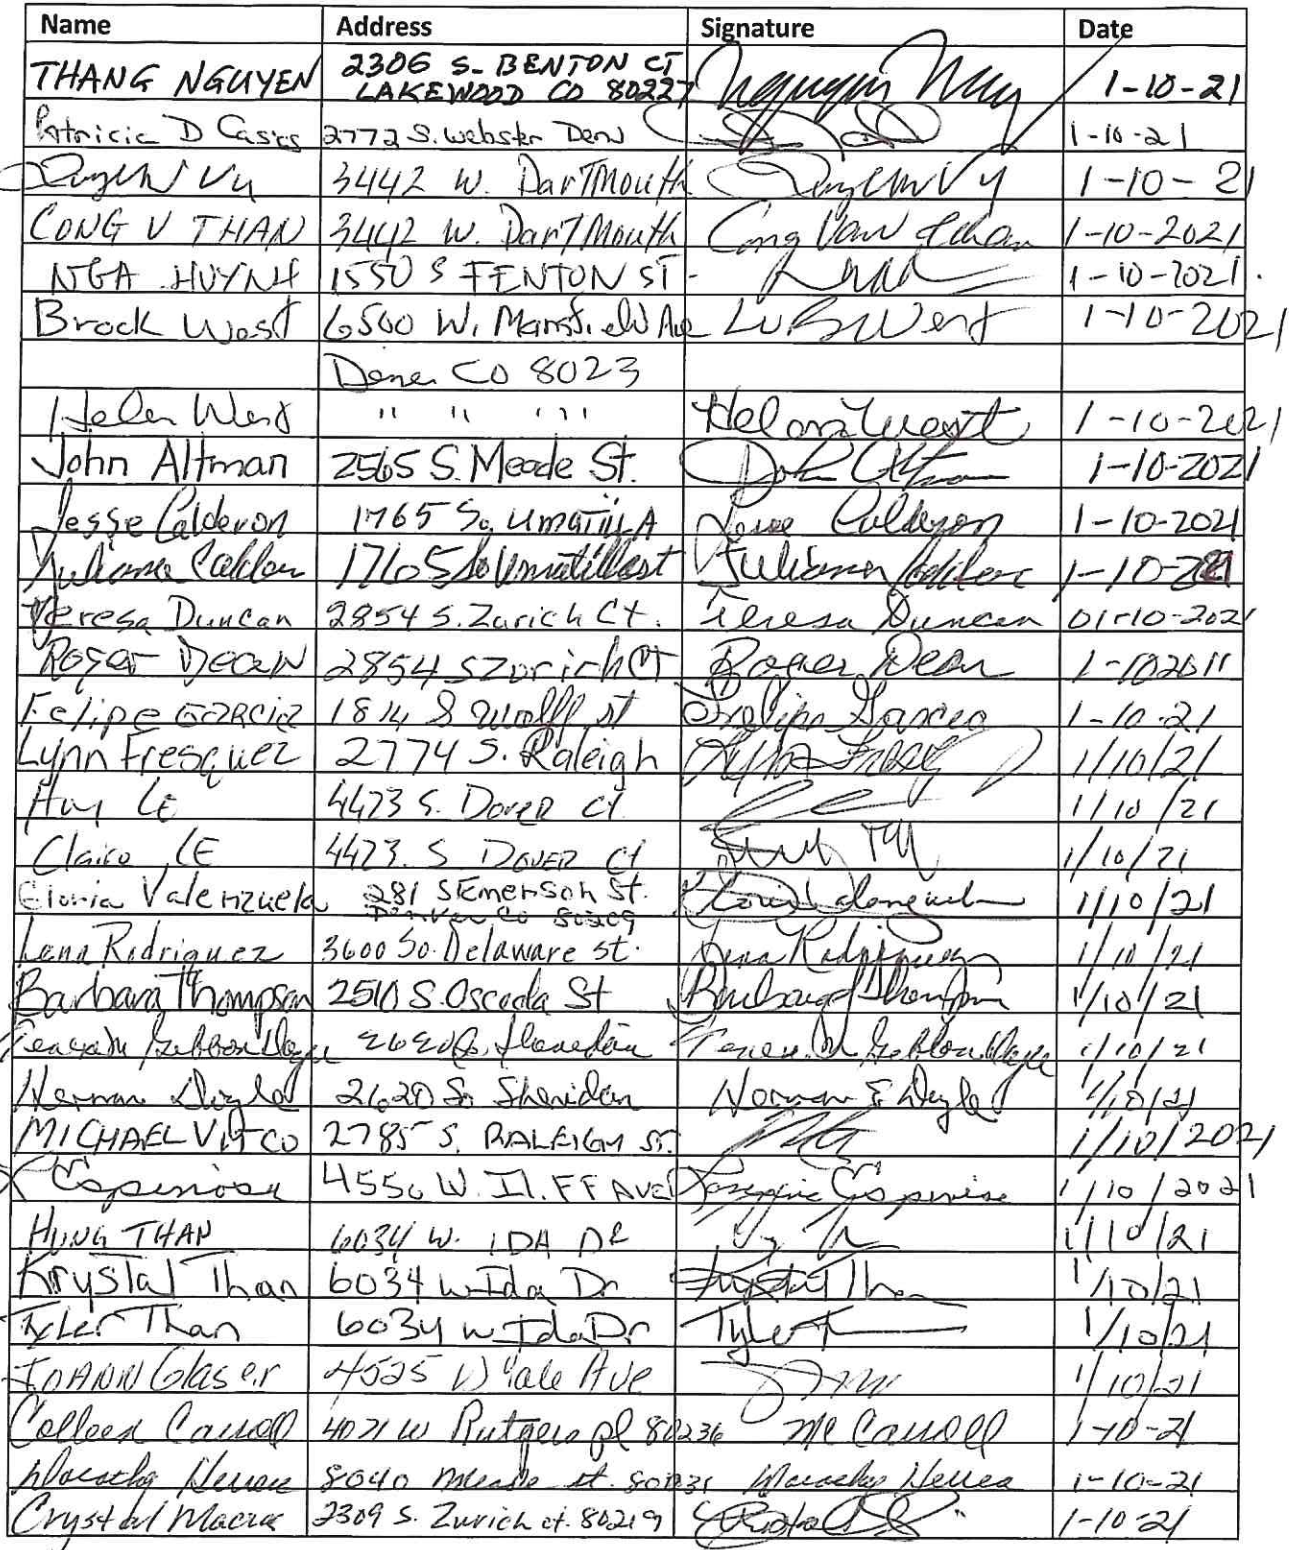 Name Address Signature Date
THANG NGUYEN 2306 S. BENTON CT LAKEWOOD CO 80227 Nguyen 1-10-21
Patricia D Casias 2772 S. Webster Denv 1-10-21
Duyen Vu 3442 W. DarTMouth Duyen Vu 1-10-21
CONG V THAN 3442 W. DarTMouth Cong Van Than 1-10-2021
NGA HUYNH 1550 S FENTON ST- 1-10-2021.
Brock West 6500 W. Mansfield Ave West 1-10-2021
CO 8023
Helen West " " " " Helen West 1-10-2021
John Altman 2565 S. Meade St. John Altman 1-10-2021
Jesse Calderon 1765 So, UMATILLA Jesse Calderon 1-10-2021
1765 So Umatilla st 1-10-
Teresa Duncan 2854 S. Zurich Ct. Teresa Duncan 01-10-2021
Roger Dean 2854 S Zurich CT Roger Dean 1-102011
Felipe GARCIA 1814 S Wolff st Felipe Garcia 1-10-21
Lynn Fresquez 2774 S. Raleigh 1/10/21
Huy LE 4473 S. DoveR Ct 1/10/21
Claire LE 4473. S DOVER Ct 1/10/21
Gloria Valenzuela 281 S Emerson St. Denver Co 80209 1/10/21
Lena Rodriguez 3600 So. Delaware st. Lena Rodriguez 1/10/21
Barbara Thompson 2510 S. Osceola St Barbara Thompson 1/10/21
1/10/21
Norman Doyle 2620 So Sheridan Norman E Doyle 1/10/21
MICHAEL VITCO 2785 S. RALEIGH ST. 1/10/2021
Espinosa 4550 W. Il.FF AVE Espinosa 1/10/2021
HUNG THAN 6034 W. IDA DR 1/10/21
Krystal Than 6034 W Ida Dr Krystal Than 1/10/21
Tyler Than 6034 W Ida Dr Tyler T 1/10/21
JOANN Glaser 4525 W Yale Ave 1/10/21
Colleen Carroll 4071 W Rutgers pl 80236 Mc Carroll 1-10-21
8040 1-10-21
Crystal Macias 2309 S. Zurich ct. 80219 1-10-21